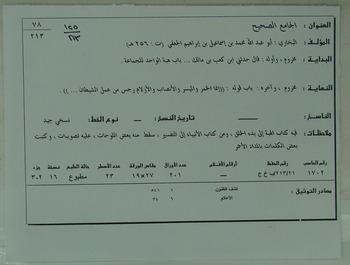 ٧٨
٢١٣
١٢٥
٢١٣
العنوان : الجامع الصحيح
المؤلف : البخاري : أبو عبد الله محمد بن إسماعيل بن إبراهيم الجعفي (ت : ٢٥٦ هـ)
البداية : مخروم ، وأوله : قال حدثني ابن كعب بن مالك ... باب هبة الواحد للجماعة.
النهاية : مخروم ، وآخره : باب قوله : ((إنما الخمر والميسر والأنصاب والأزلام رجس من عمل الشيطان ... )) .
الناسخ : تاريخ النسخ : نوع الخط : نسخي جيد
ملاحظات : فيه كتاب الهبة إلى بدء الخلق ، ومن كتاب الأنبياء إلى التفسير ، سقط عنه بعض اللوحات ، عليه تصويبات ، وكتبت
بعض الكلمات بالمداد الأحمر
رقم الحاسب رقم الحفظ أرقام الأفلام عدد الأوراق مقاس الورقة عدد الأسطر حالة الطبع نسخة جزء
١٧٠٢ ٢٠١ ٢٧×١٩ ٢٣ مطبوع ١٦ ٢-٣
مصادر التوثيق : كشف الظنون ١ ٥٤١
الأعلام ٦ ٣٤